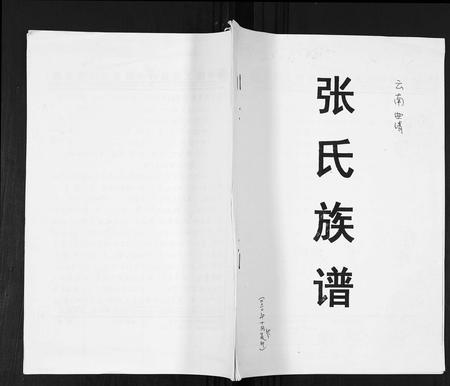 张氏族谱
云南曲靖